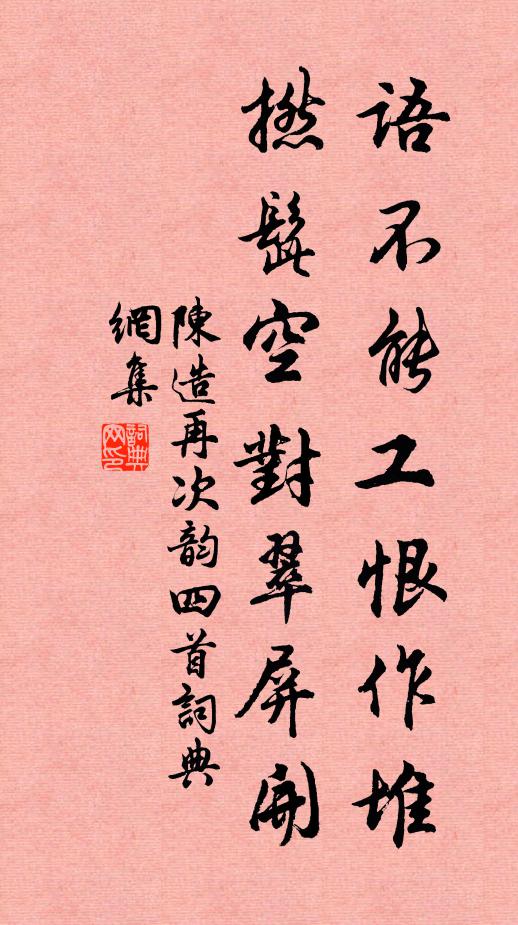 語不能工恨作堆
撚髭空對翠屏開
陳造再次韵四首詞典
網集
詞典
网印